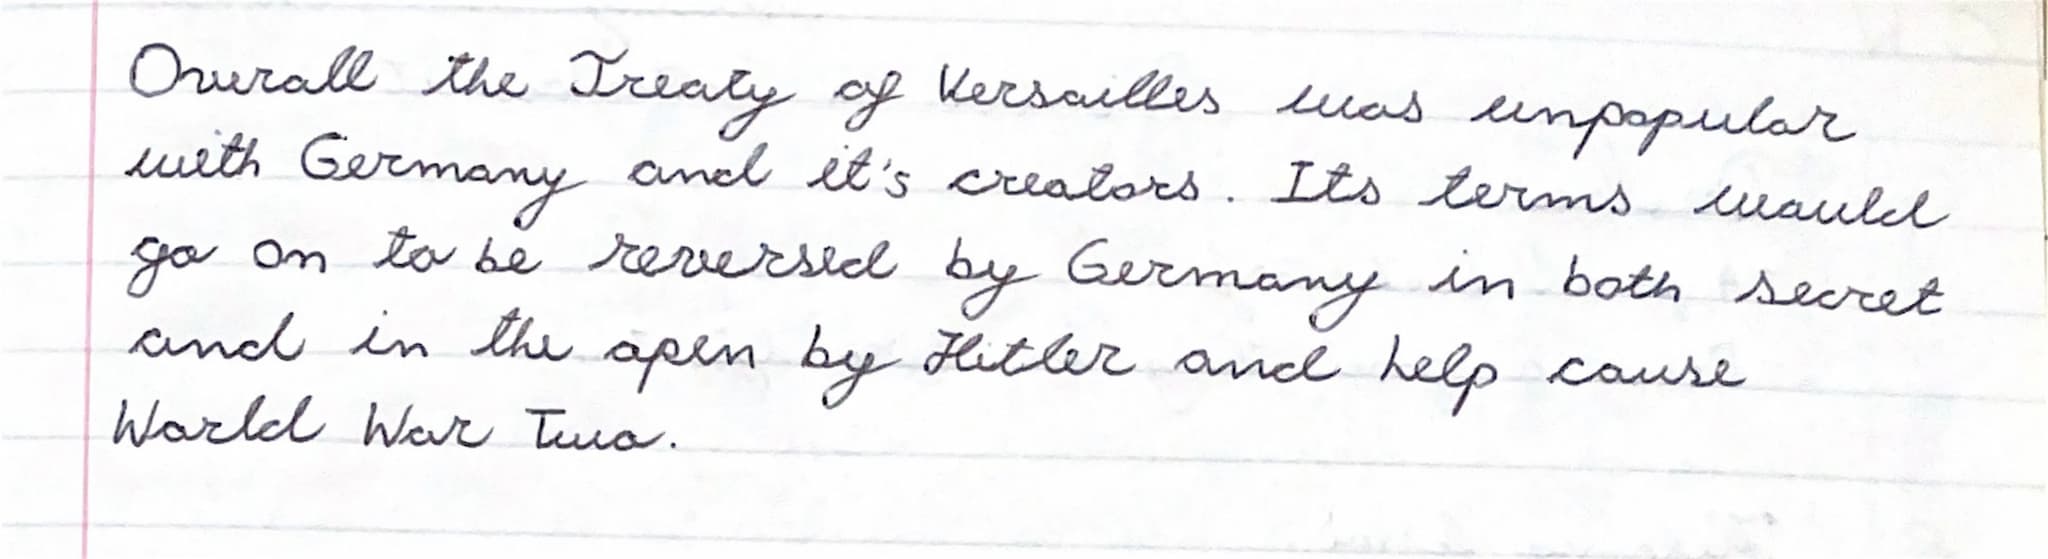 Overall the Treaty of Versailles was unpopular
with Germany and it's creators. Its terms would
go on to be reversed by Germany in both secret
and in the open by Hitler and help cause
World War Two.